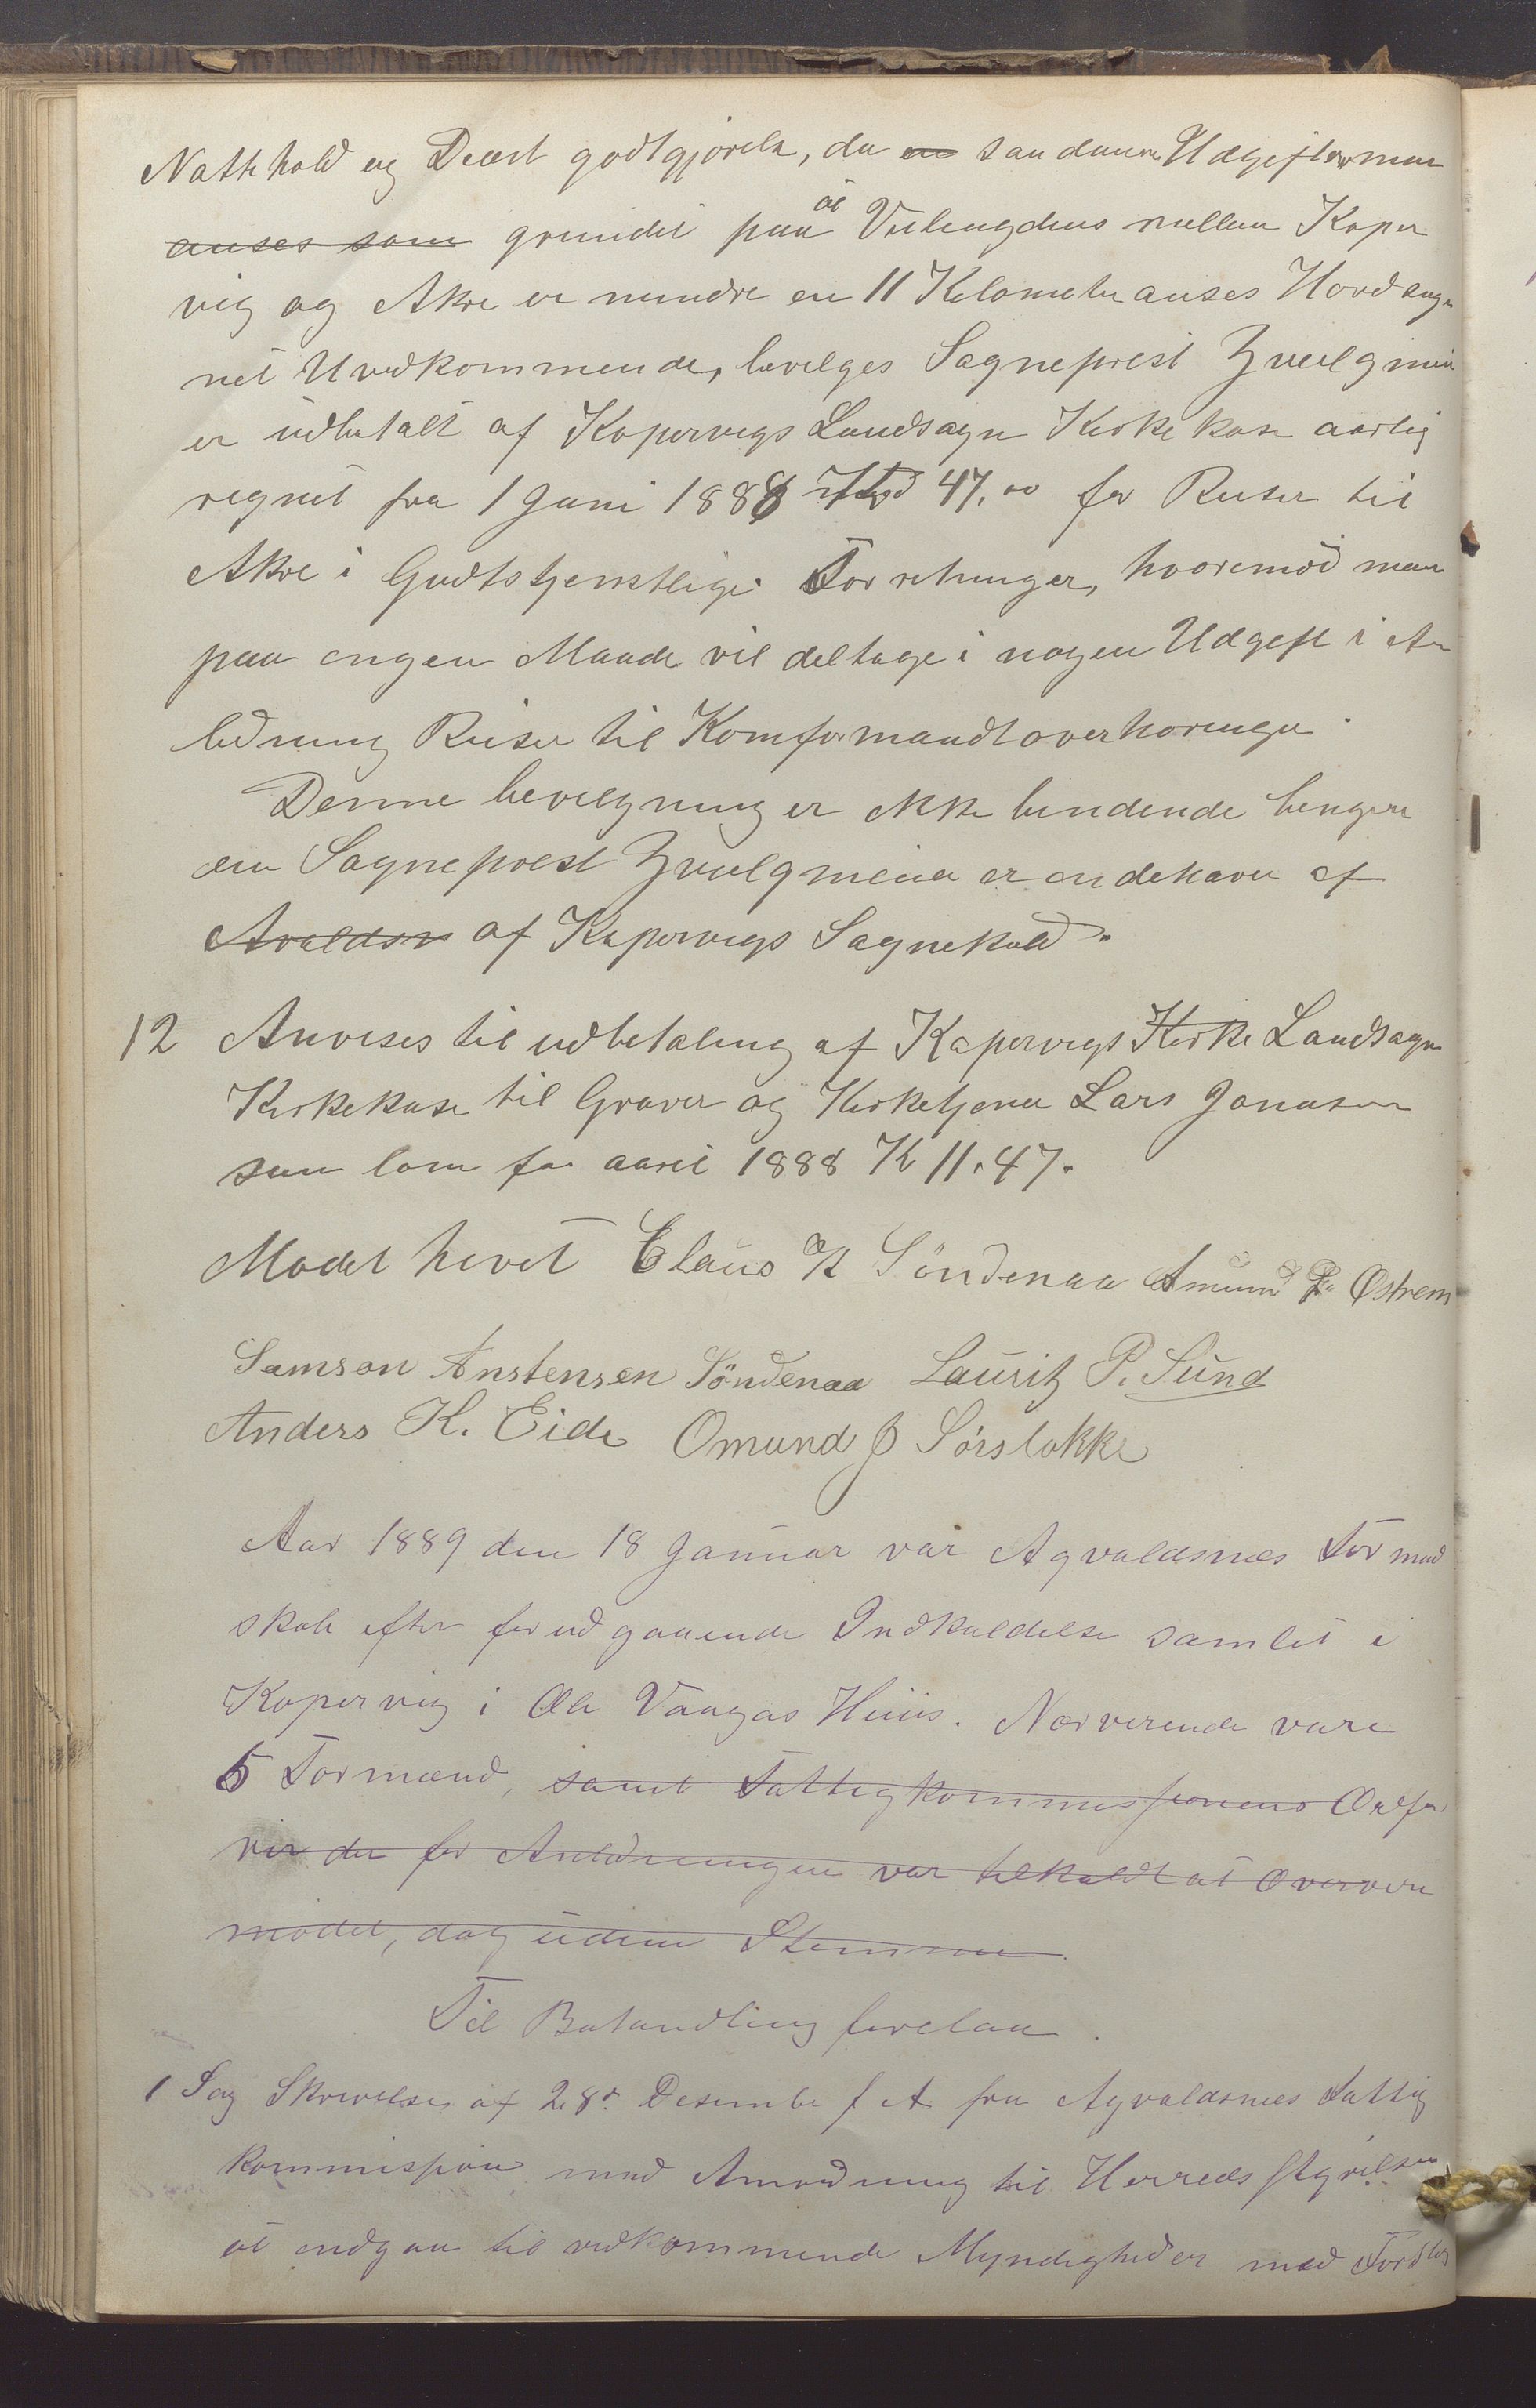 Nattehold og Diæt godtgjörelse, da en saadanne Udgifter man
anses som grundet paa at Veilengdens mellem Koper
vig og Akre er mindre en 11 Kilometer anses Hovdsog
net Uvedkommende, bevilges Sogneprest Zwilgmei
er udbetalt af Kopervigs Landsogn Kirkekase aarlig
regnet fra 1 Juni 1888 med 47,00 for Reiser til
Akre i Gudstjenstlige Forretninger, hvorimod man
paa ingen Maade vil deltage i nogen Udgift i An
ledning Reiser til Komfirmandtoverhöringer.
Denne bevilgning er ikke bindende lenger
en Sogneprest Zwilgmeier er indehaver af
Avaldsn af Kopervigs Sognekald.
12 Anvises til udbetaling af Kopervigs Kirke Landsogn
Kirkekase til Graver og Kirketjener Lars Jonasen
som lön for aaret 1888 Kr 11.47.
Mödet hevet Claus K Söndenaa Amund P. Østrem
Samson Anstensen Söndenaa Lauritz P. Sund
Anders K. Eide Omund J Sörstokke
Aar 1889 den 18 Januar var Agvaldsnes Formand
skab efter forudgaaende Indkaldelse samlet i
Kopervig i Ole Vaagas Huus. Nærverende vare
5 Formænd, samt Fattigkommissionens Ordfö
rer der for Anledningen var tilkaldt at Oververe
mödet, dog uden Stemme
Til Behandling forelaa.
1 Sag Skrivelse af 28d Desember f A fra Agvaldsnes Fattig
kommission med Anmodning til Herredsstyrelsen
at indgaa til vedkommende Myndigheder med Forslag